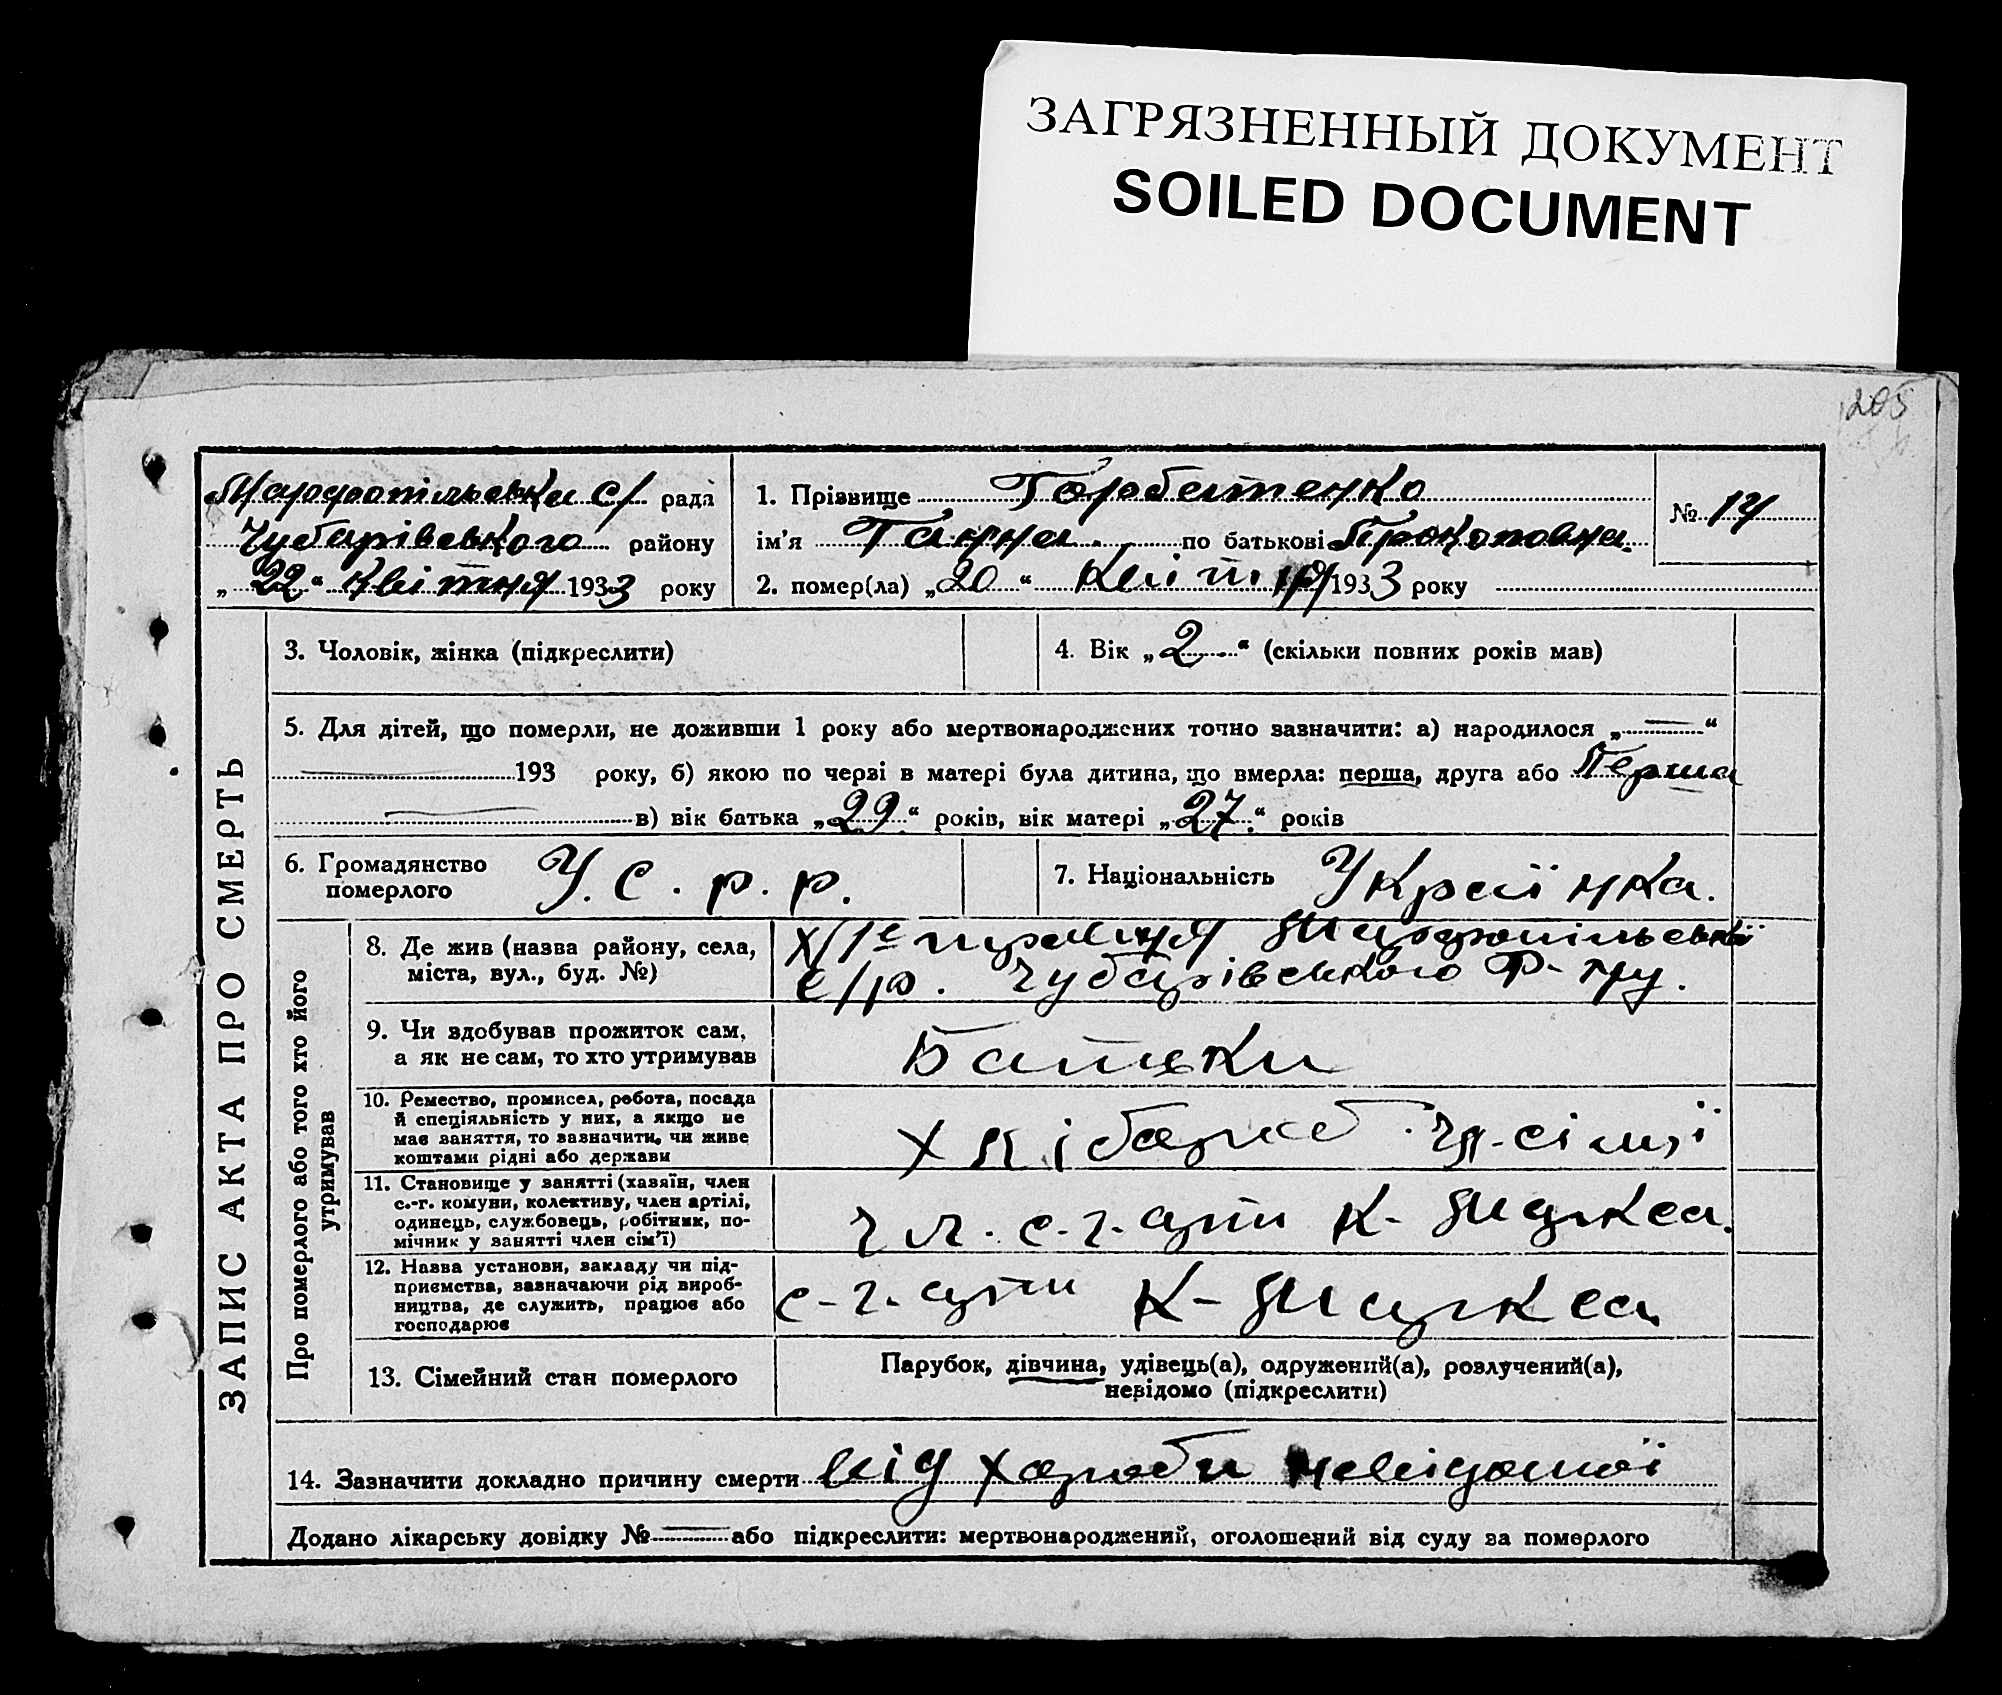 ЗАГРЯЗНЕННЫЙ ДОКУМЕНТ
SOILED DOCUMENT
205
Марфопільська с/ рада
Чубарівського району
„22“ Квітня 1933 року
1. Прізвище Горбатенко
ім'я Ганна по батькові Прокоповна.
2. помер(ла) „20“ Квітня 1933 року
№ 14
ЗАПИС АКТА ПРО СМЕРТЬ
3. Чоловік, жінка (підкреслити)
4. Вік „2“ (скільки повних років мав)
5. Для дітей, що померли, не доживши 1 року або мертвонароджених точно зазначити: а) народилося „—“
193 року, б) якою по черзі в матері була дитина, що вмерла: перша, друга або Перша
в) вік батька „29“ років, вік матері „27“ років
6. Громадянство
померлого
У.С.р.р.
7. Національність Украінка.
Про померлого або того хто його
утримував
8. Де жив (назва району, села,
міста, вул., буд. №)
Марфопільської
с/р. Чубарівського Р-ну.
9. Чи здобував прожиток сам,
а як не сам, то хто утримував
Батьки
10. Ремество, промисел, робота, посада
й спеціяльність у них, а якщо не
має заняття, то зазначити, чи живе
коштами рідні або держави
Хлібороб чл-сімї
11. Становище у занятті (хазяїн, член
с.-г. комуни, колективу, член артілі,
одинець, службовець, робітник, по-
мічник у занятті член сім'ї)
чл. с.-г. арт К-Маркса.
12. Назва установи, закладу чи під-
приємства, зазначаючи рід вироб-
ництва, де служить, працює або
господарює
с-г. арт К-Маркса
13. Сімейний стан померлого
Парубок, дівчина, удівець(а), одружений(а), розлучений(а),
невідомо (підкреслити)
14. Зазначити докладно причину смерти від хароби невідомої
Додано лікарську довідку №— або підкреслити: мертвонароджений, оголошений від суду за померлого